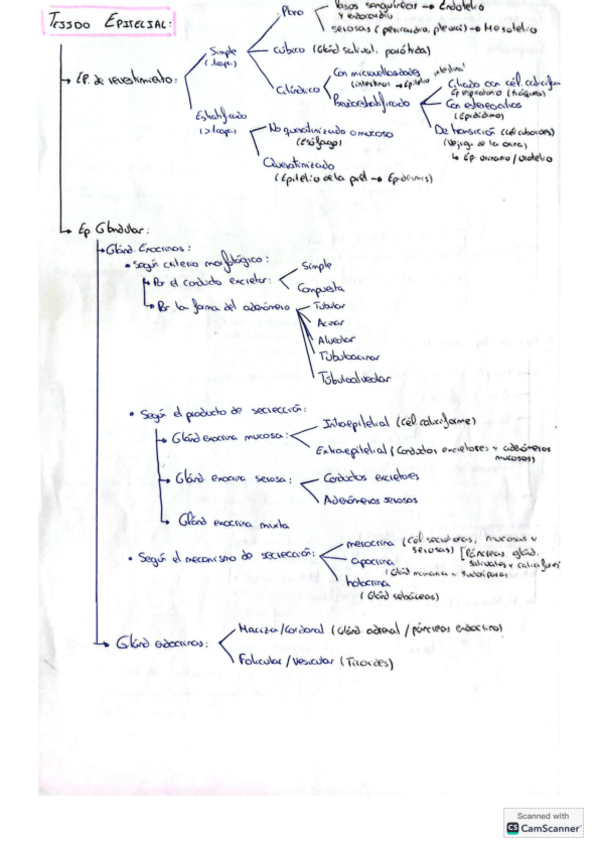 TEJIDO EPITELIAL:
Ep. de revestimiento:
Simple (1 capa)
Plano
Vasos sanguíneos → Endotelio
y endocardio
serosas (pericardio, pleura) → Mesotelio
cúbico (Gland salival, parótida)
Cilíndrico
Con microvellosidades
(intestinos → Epitelio intestinal
Pseudoestratificado
Ciliado con cél. caliciformes
Ep respiratorio (tráquea)
Con estereocilios
(Epidídimo)
De transición (cél cuboides)
(Vejiga de la orina)
↳ Ep. urinario / urotelio
Estratificado
(>1 capa)
No queratinizado o mucoso
(Esófago)
Queratinizado
(Epitelio de la piel → Epidermis)
Ep Glandular:
Gland. Exocrinas:
• Según criterio morfológico:
Por el conducto excretor:
Simple
Compuesta
Por la forma del adenómero
Tubular
Acinar
Alveolar
Tubuloacinar
Tubuloalveolar
• Según el producto de secrección:
Gland exocrina mucosa:
Intraepitelial (Cél. caliciforme)
Extraepitelial (Conductos excretores y adenómeros
mucosos)
Gland exocrina serosa:
Conductos excretores
Adenómeros serosos
Gland exocrina mixta
• Según el mecanismo de secrección:
merocrina (Cél secretoras, mucosas y
serosas) [Páncreas, gland.
salivales y caliciformes
apocrina
(Gland mamaria y sudoríparas)
holocrina
(Gland sebáceas)
Gland endocrinas:
Maciza/Cordonal (Gland adrenal / páncreas endocrino)
Folicular / Vesicular (Tiroides)
Scanned with
CS CamScanner